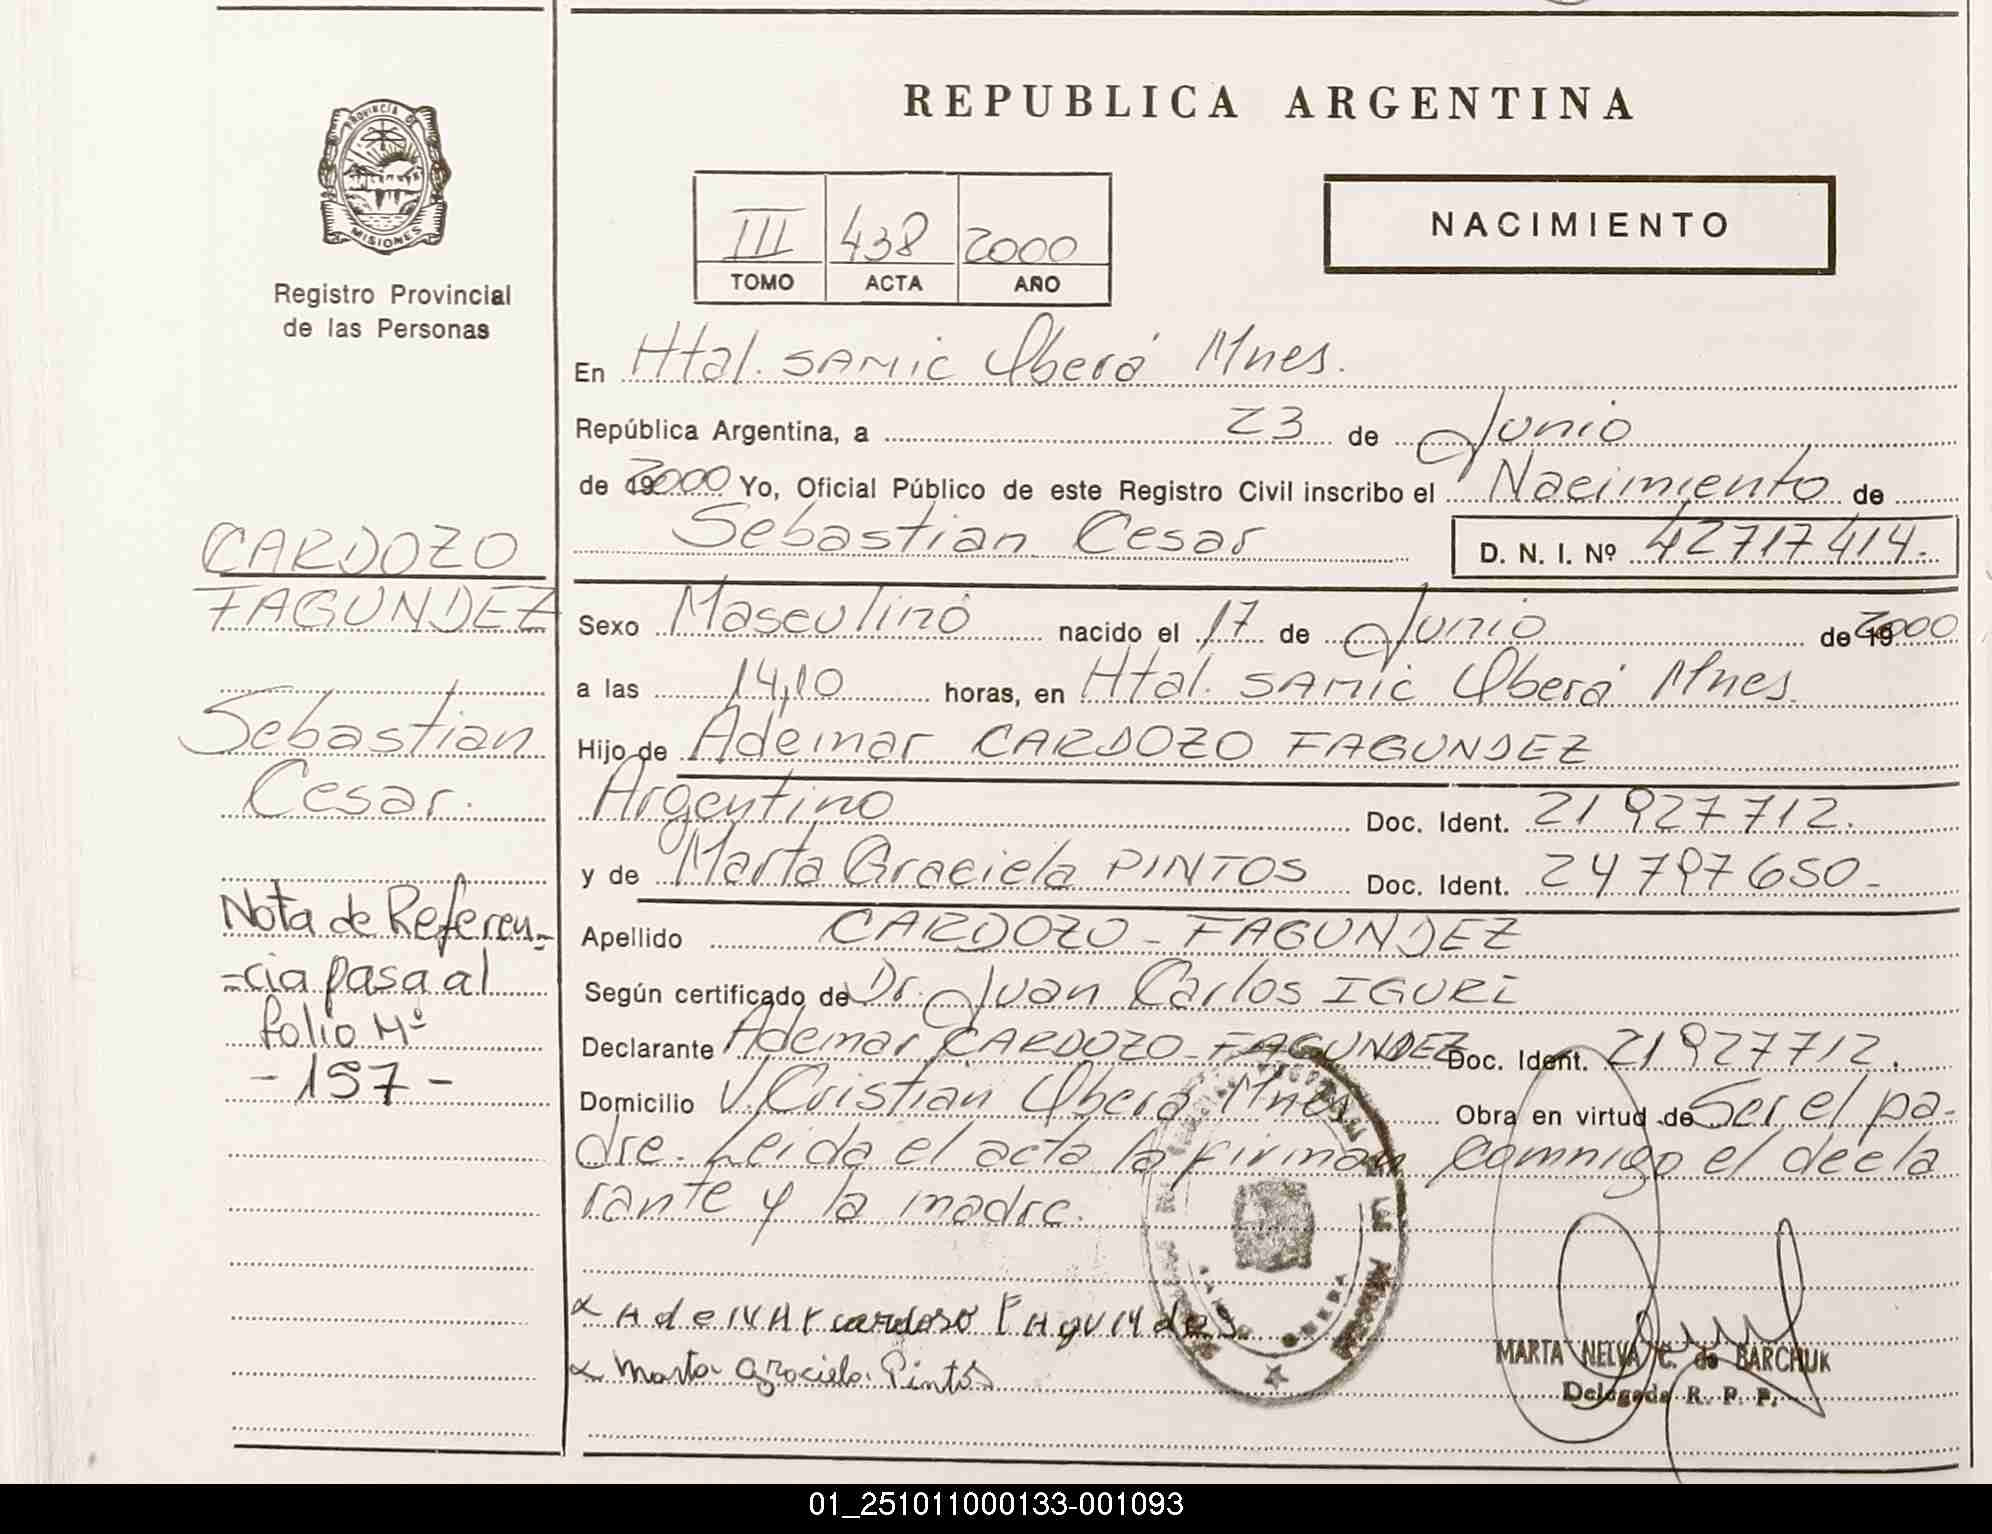 REPUBLICA ARGENTINA
PROVINCIA DE
MISIONES
Registro Provincial
de las Personas
III 438 2000
TOMO ACTA AÑO
NACIMIENTO
En Htal. SAMIC Oberá Mnes.
República Argentina, a 23 de Junio
de 192000 Yo, Oficial Público de este Registro Civil inscribo el Nacimiento de
Sebastian Cesar D. N. I. Nº 42717414-
CARDOZO
FAGUNDEZ
Sebastian
Cesar.
Nota de Referen-
-cia pasa al
folio Nº
- 157 -
Sexo Masculino nacido el 17 de Junio de 192000
a las 14,10 horas, en Htal. SAMIC Oberá Mnes.
Hijo de Ademar CARDOZO FAGUNDEZ
Argentino Doc. Ident. 21 927 712.
y de Marta Graciela PINTOS Doc. Ident. 24 797 650-
Apellido CARDOZO - FAGUNDEZ
Según certificado de Dr. Juan Carlos IGURI
Declarante Ademar CARDOZO-FAGUNDEZ Doc. Ident. 21 927 712.
Domicilio V. Cristian Oberá Mnes Obra en virtud de Ser el pa-
dre. Leida el acta la firman comnigo el decla
rante y la madre.
Marta Graciela Pintos
MARTA NELVA C. de BARCHUK
Delegada R. P. P.
01_251011000133-001093